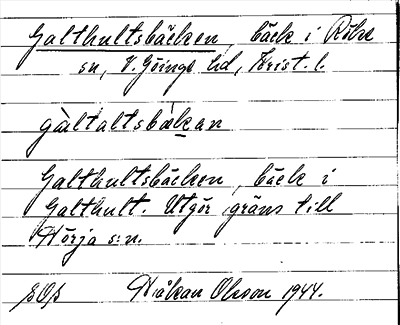 Galthultsbäcken, bäck i Röke
sn, V. Göinge hd, Krist. l.
gàltaltsbækan
Galthultsbäcken, bäck i
Galthult. Utgör gräns till
Hörja s:n.
Håkan Olsson 1944.